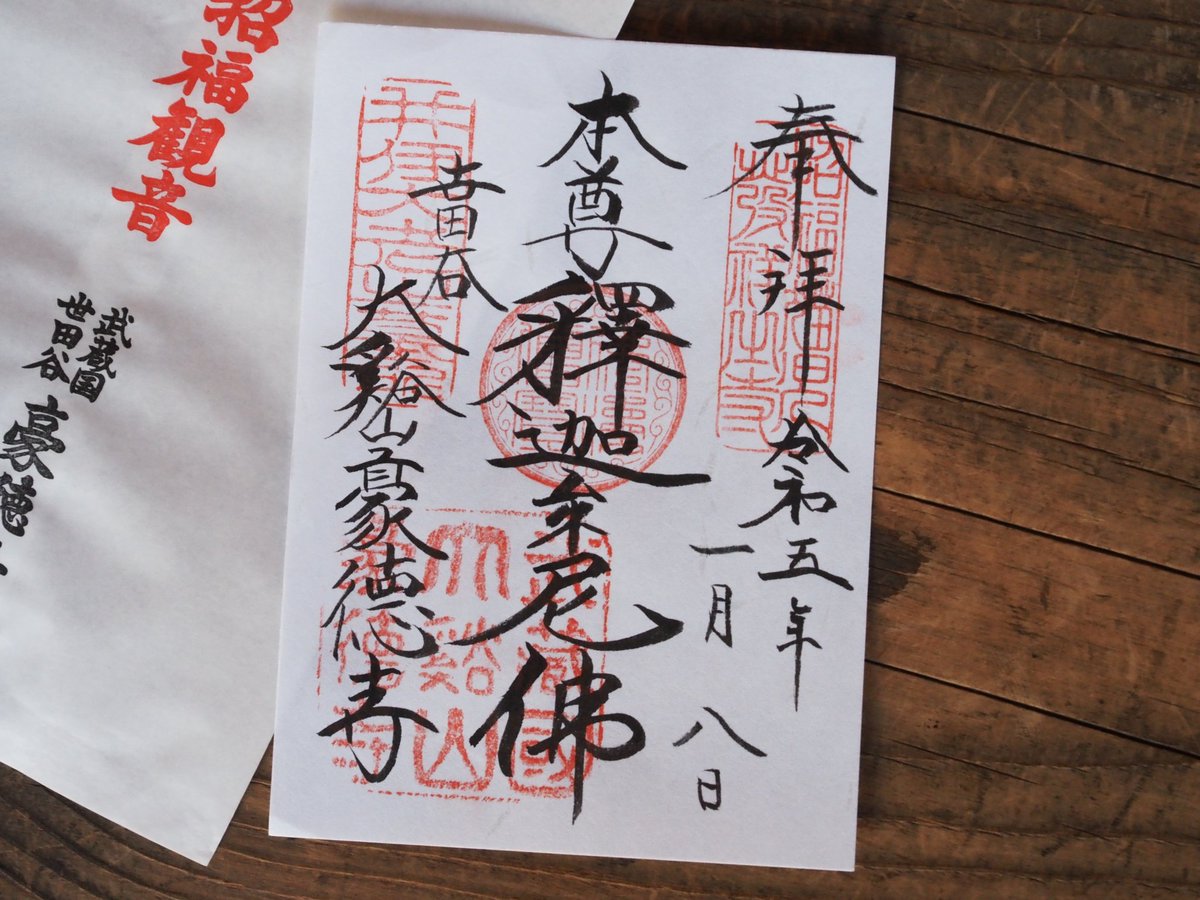 奉拝
令和五年
一月
八日
本尊
釋迦牟尼佛
世田谷
大谿山豪徳寺
武蔵國
大谿山
豪徳寺
招福観音
武蔵国
世田谷
豪徳